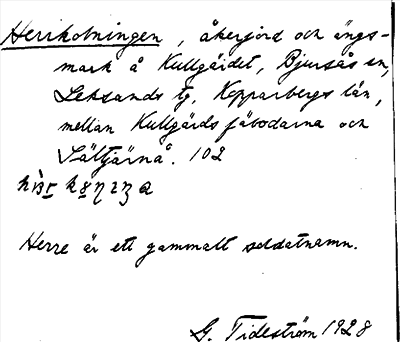 Herrkolningen, åkerjord och ängs-
mark å Kullgärdet, Bjursås sn,
Leksands tg, Kopparbergs län,
mellan Kullgärds fäbodarna och
Sältjärnå. 102
Herre är ett gammalt soldatnamn.
G. Tideström 1928